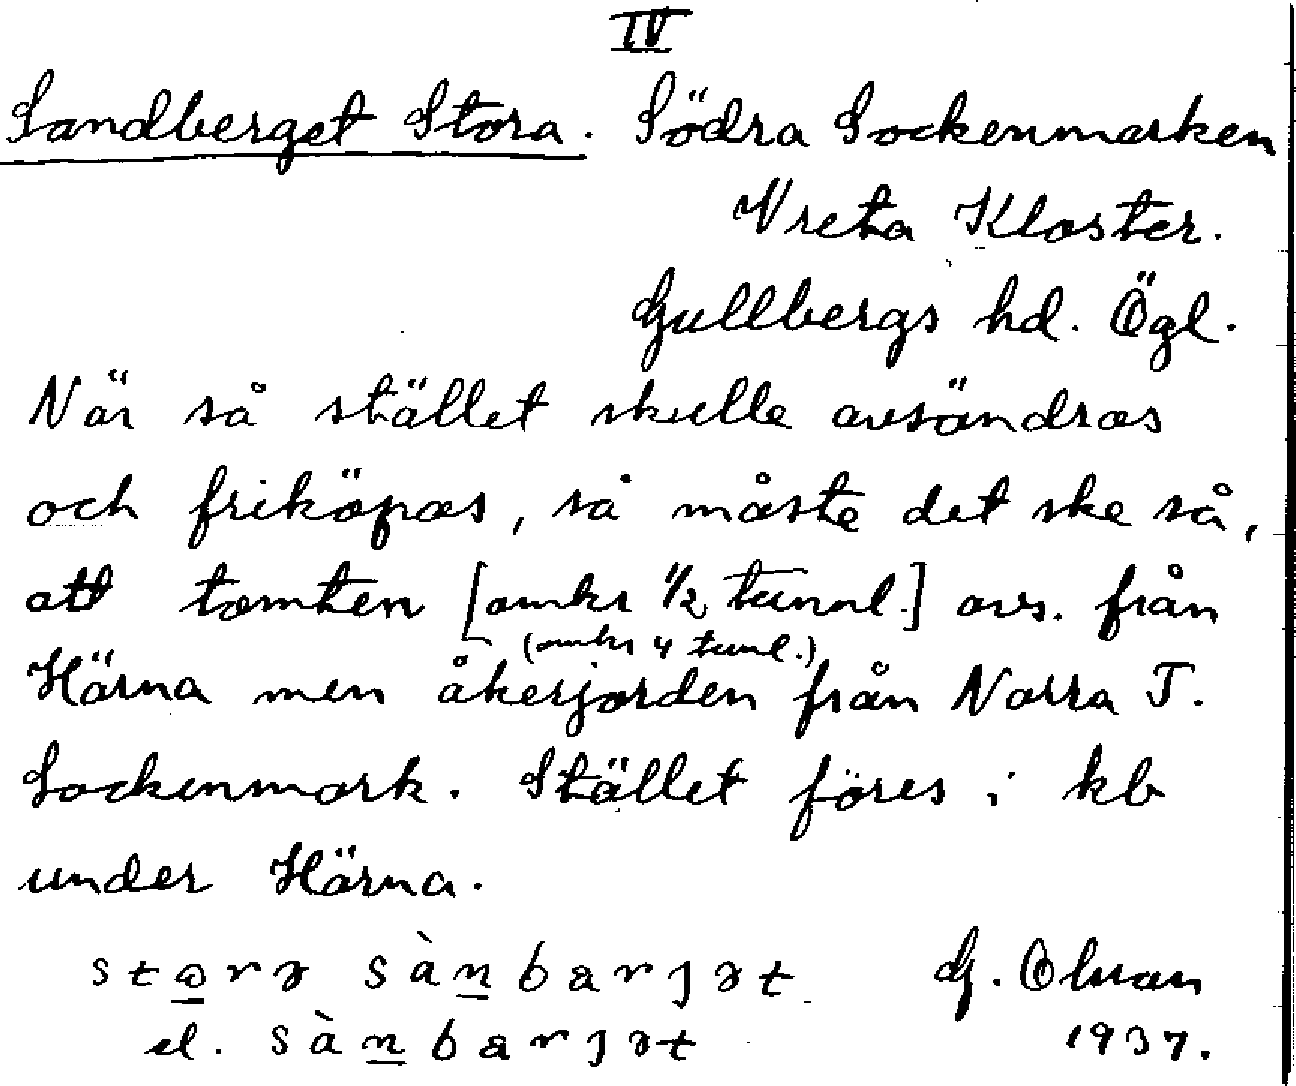 IV
Sandberget Stora. Södra Sockenmarken
Vreta Kloster.
Gullbergs hd. Ögl.
När så stället skulle avsöndras
och friköpas, så måste det ske så,
att tomten [omkr 1/2 tunnl.] avs. från
(omkr 4 tunl.)
Härna men åkerjorden från Norra T.
Sockenmark. Stället föres i kb
under Härna.
G. Olsson
el.
1937.